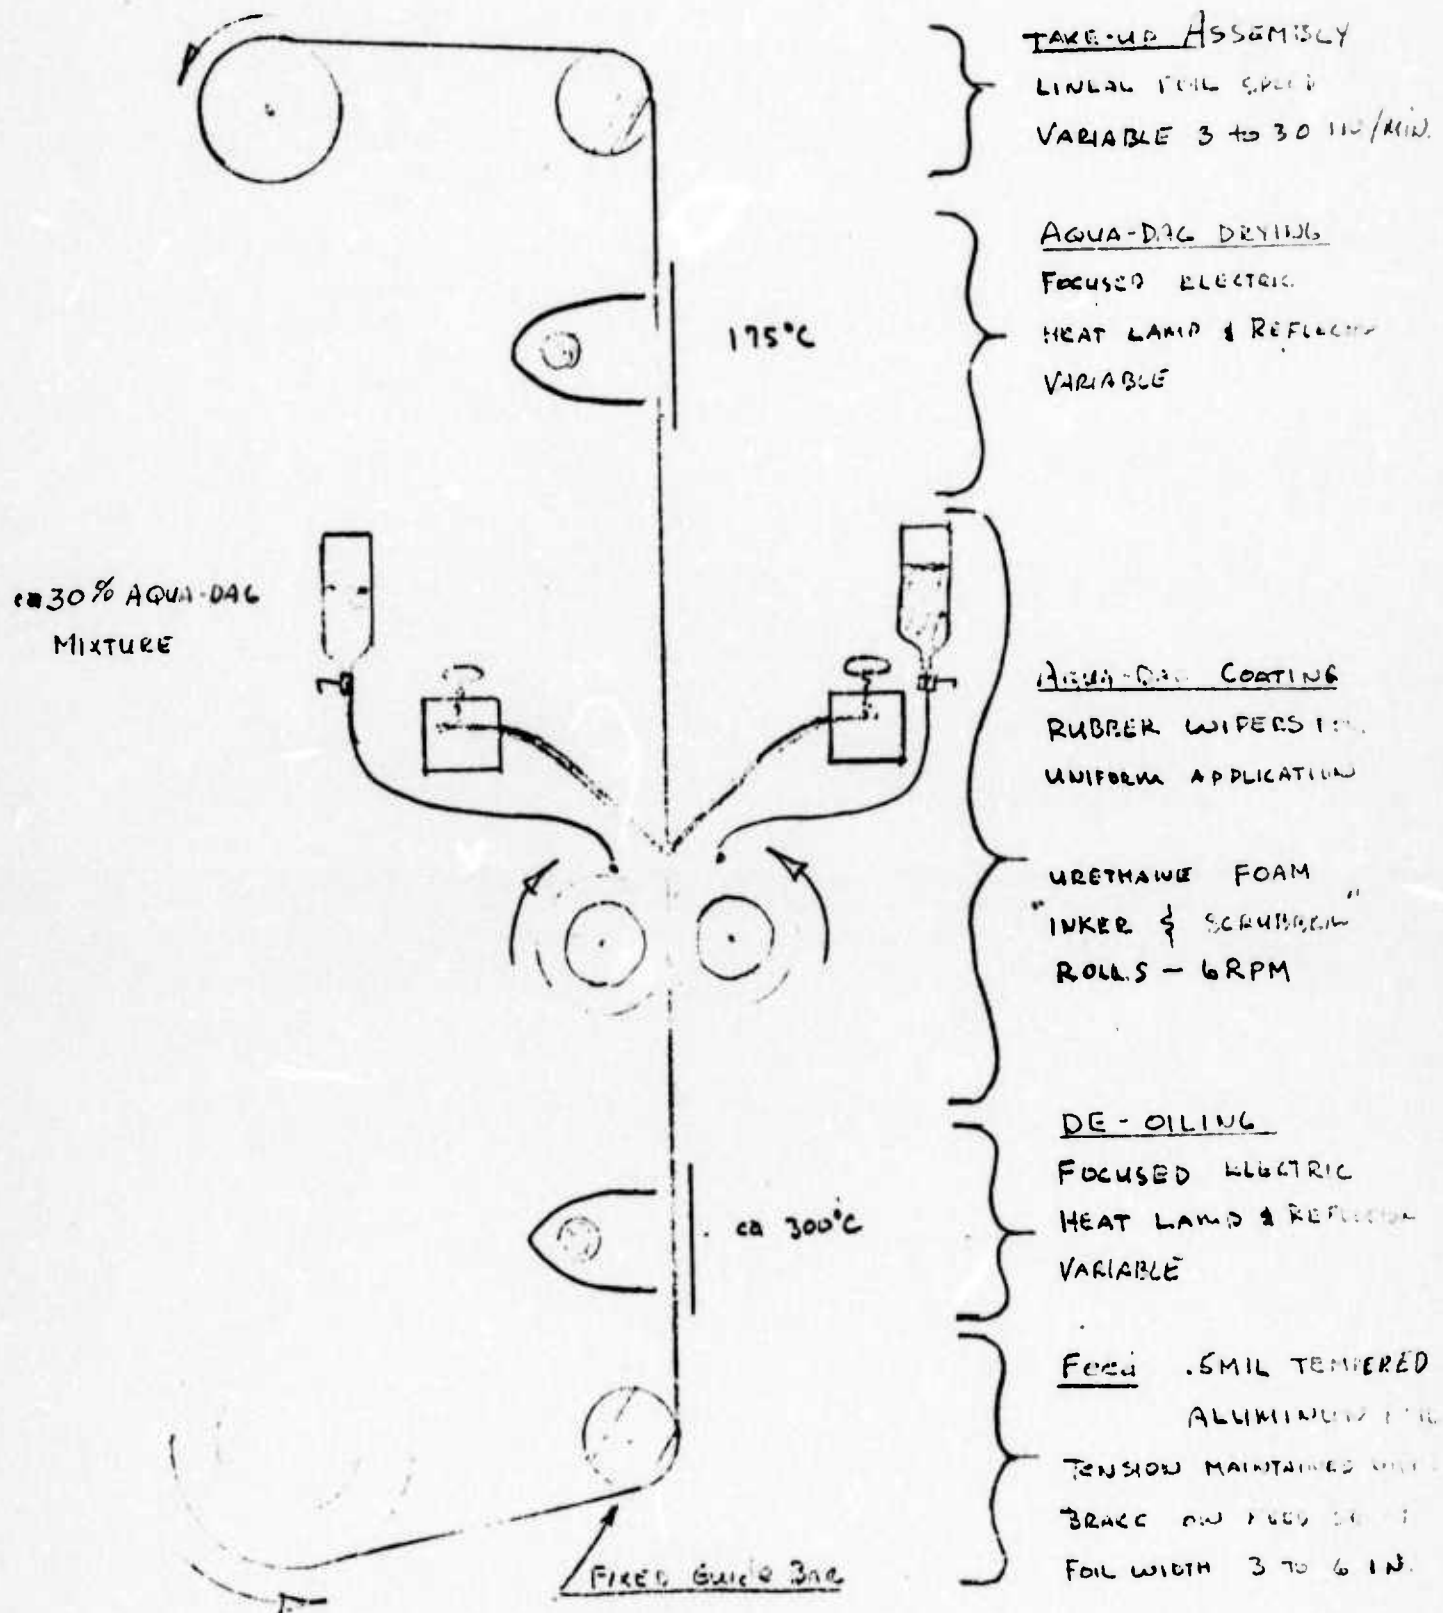 TAKE-UP ASSEMBLY
LINEAL FOIL SPEED
VARIABLE 3 to 30 IN/MIN.
AQUA-DAG DRYING
FOCUSED ELECTRIC
HEAT LAMP & REFLECTOR
VARIABLE
175°C
ca 30% AQUA-DAG
MIXTURE
AQUA-DAG COATING
RUBBER WIPERS
UNIFORM APPLICATION
URETHANE FOAM
"INKER & SCRUBBER"
ROLLS - 6 RPM
DE-OILING
FOCUSED ELECTRIC
HEAT LAMP & REFLECTOR
VARIABLE
ca 300°C
Feed .5MIL TEMPERED
ALUMINUM FOIL
TENSION MAINTAINED
BRAKE ON FEED
FOIL WIDTH 3 TO 6 IN.
FIXED GUIDE BAR